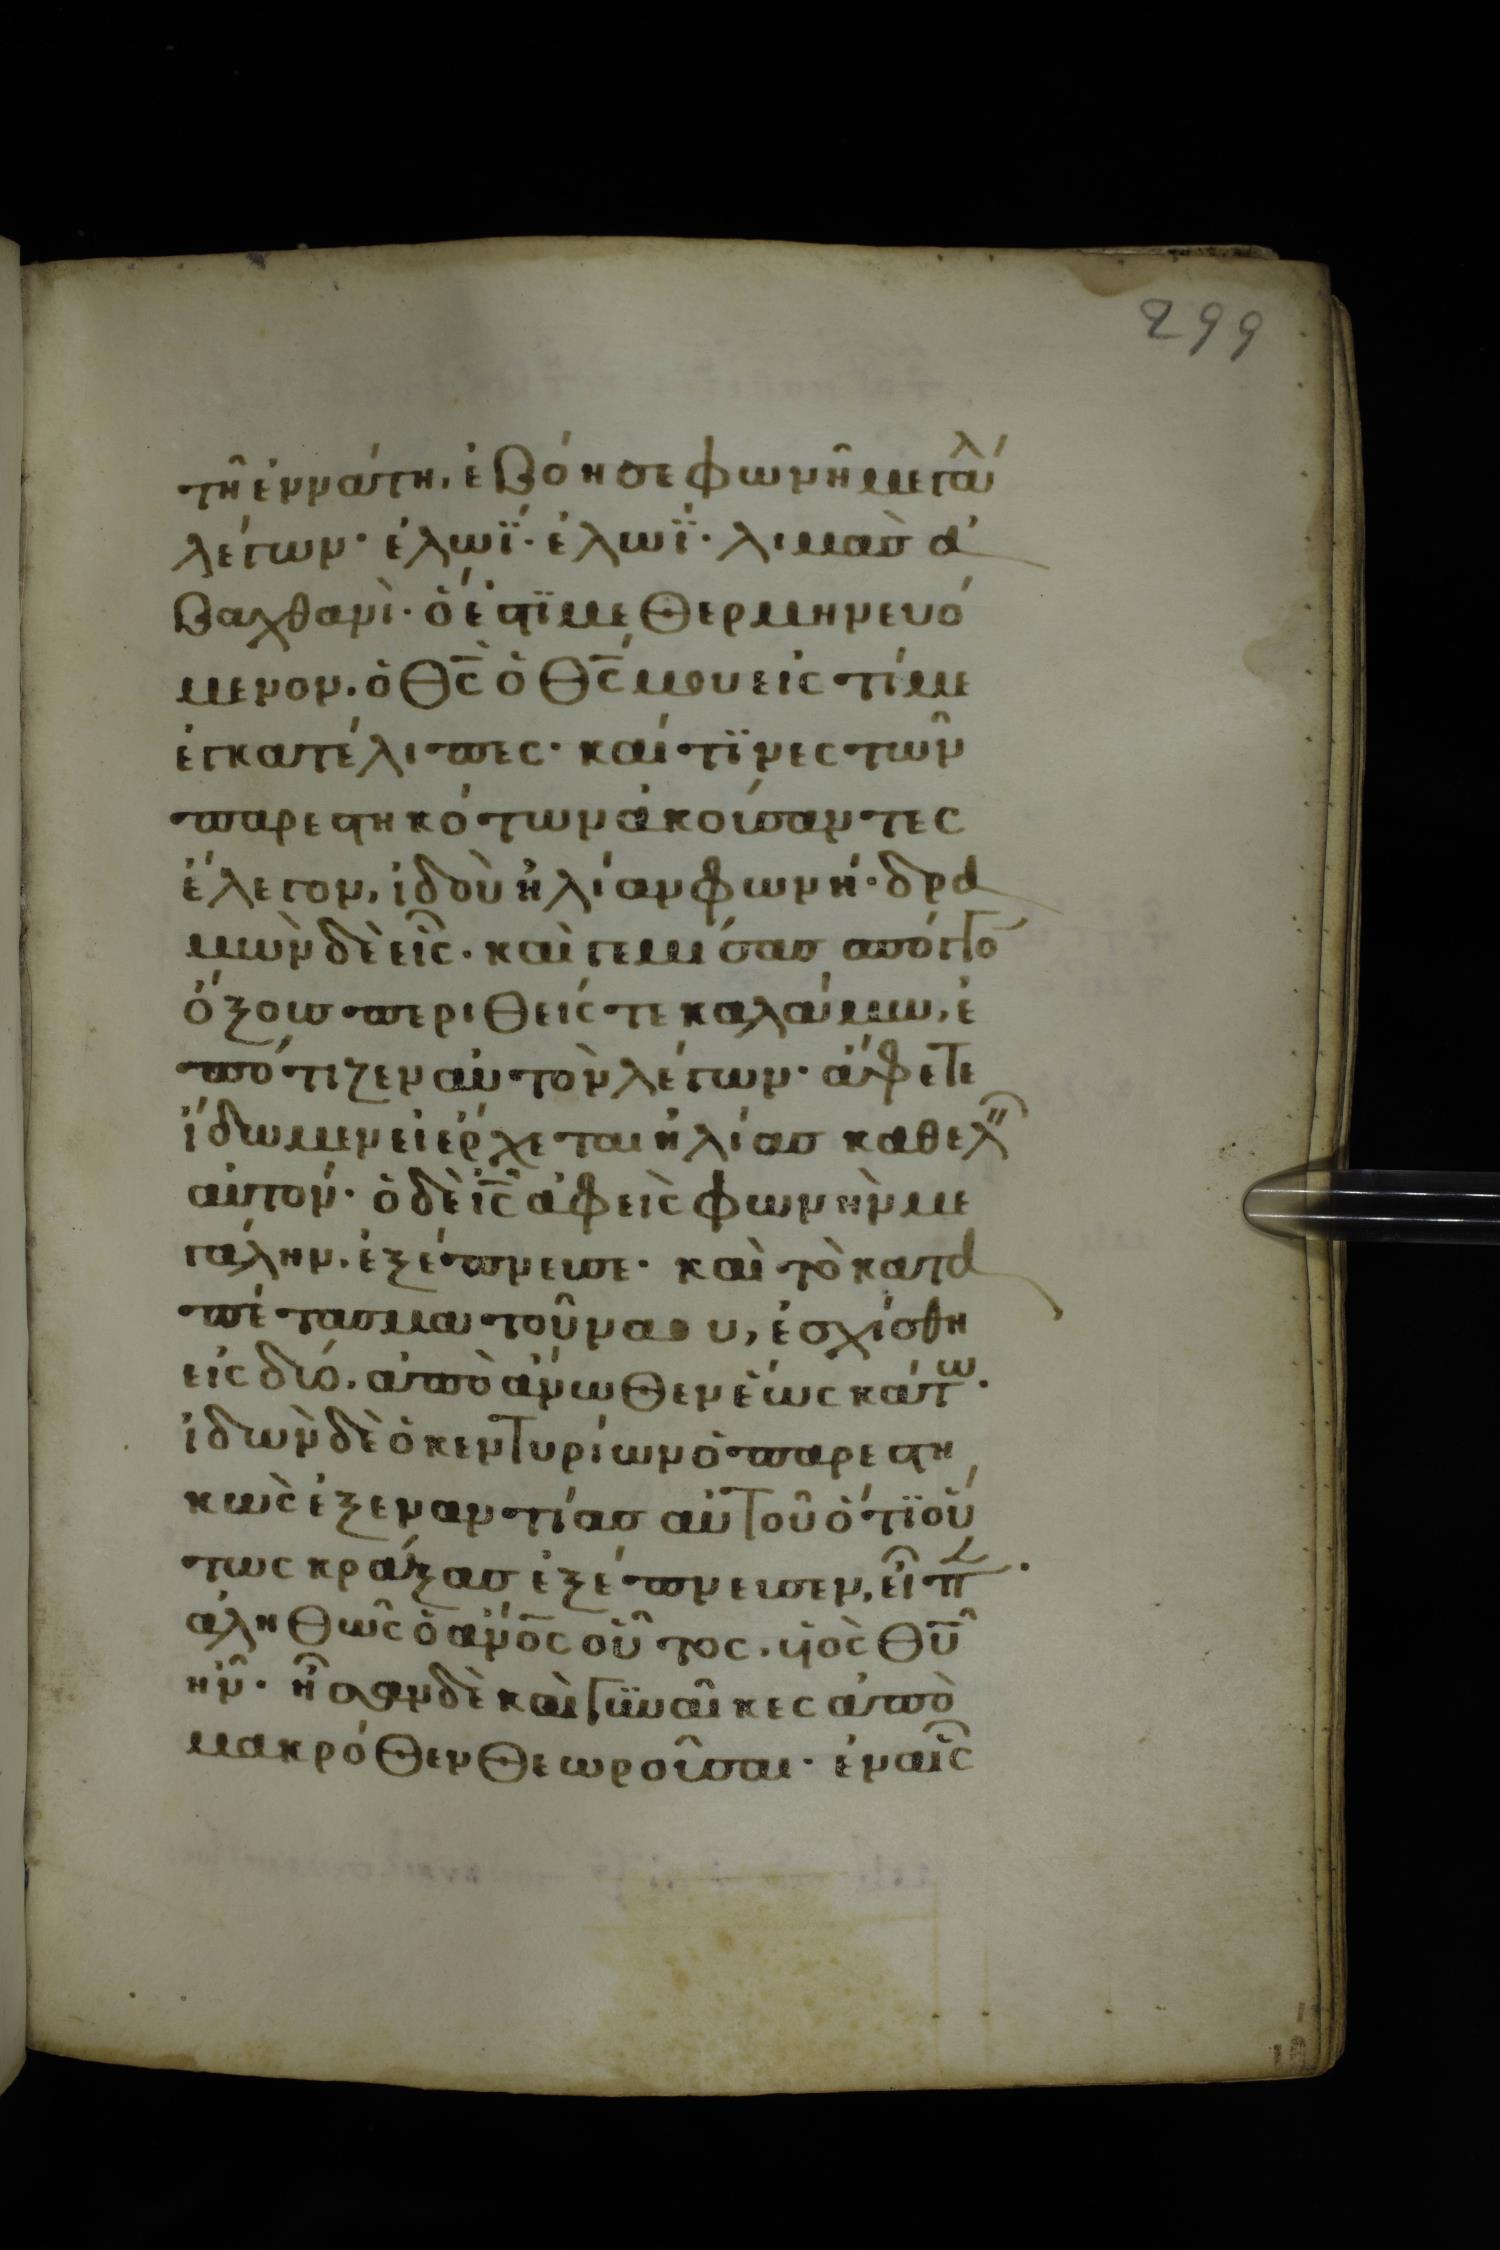 299
τῆ ἐννάτη, ἐβόησε φωνῆ μεγάλ
λέγων· ἐλωΐ· ἐλωΐ· λιμὰσἀ
βαχθανὶ· ὅ ἐστϊ μεθερμηνευό
μενον. ὁ θ̅ς̅ ὁ θ̅ς̅ μου εἰς τί με
ἐγκατέλιπες· καί τϊνες τῶν
παρεστηκότων ἀκούσαντες
ἔλεγον, ἰδοὺ ἠλίαν φωνή· δρα
μὼν δὲ εἷς· καὶ γεμίσας σπόγγο
ὄξους περιθείς τε καλάμω, ἐ
πότιζεν αὐτὸν λέγων· ἄφετε
ἴδωμεν εἰ ἔρχεται ἠλίας καθελ
αὐτον· ὁ δὲ ι̅ς̅ ἀφεὶς φωνὴν με
γάλην. ἐξέπνευσε· καὶ τὸ κατα
πέτασμα τοῦ ναου, ἐσχίσθη
εἰς δύο. ἀπὸ ἄνωθεν ἕως κάτω.
ἰδὼν δὲ ὁ κεντυρίων ὁ παρεστη
κὼς ἐξεναντίας αὐτοῦ ὅτϊ οὕ
τως κράξας ἐξέπνευσεν, εἶπ.
ἀληθῶς ὁ ἄν̅ο̅ς̅ οὗτος. ὑιὸς θ̅υ̅
ἦν· ἦσαν δὲ καὶ γϋναῖκες ἀπὸ
μακρόθεν θεωροῦσαι· ἐν αἷς